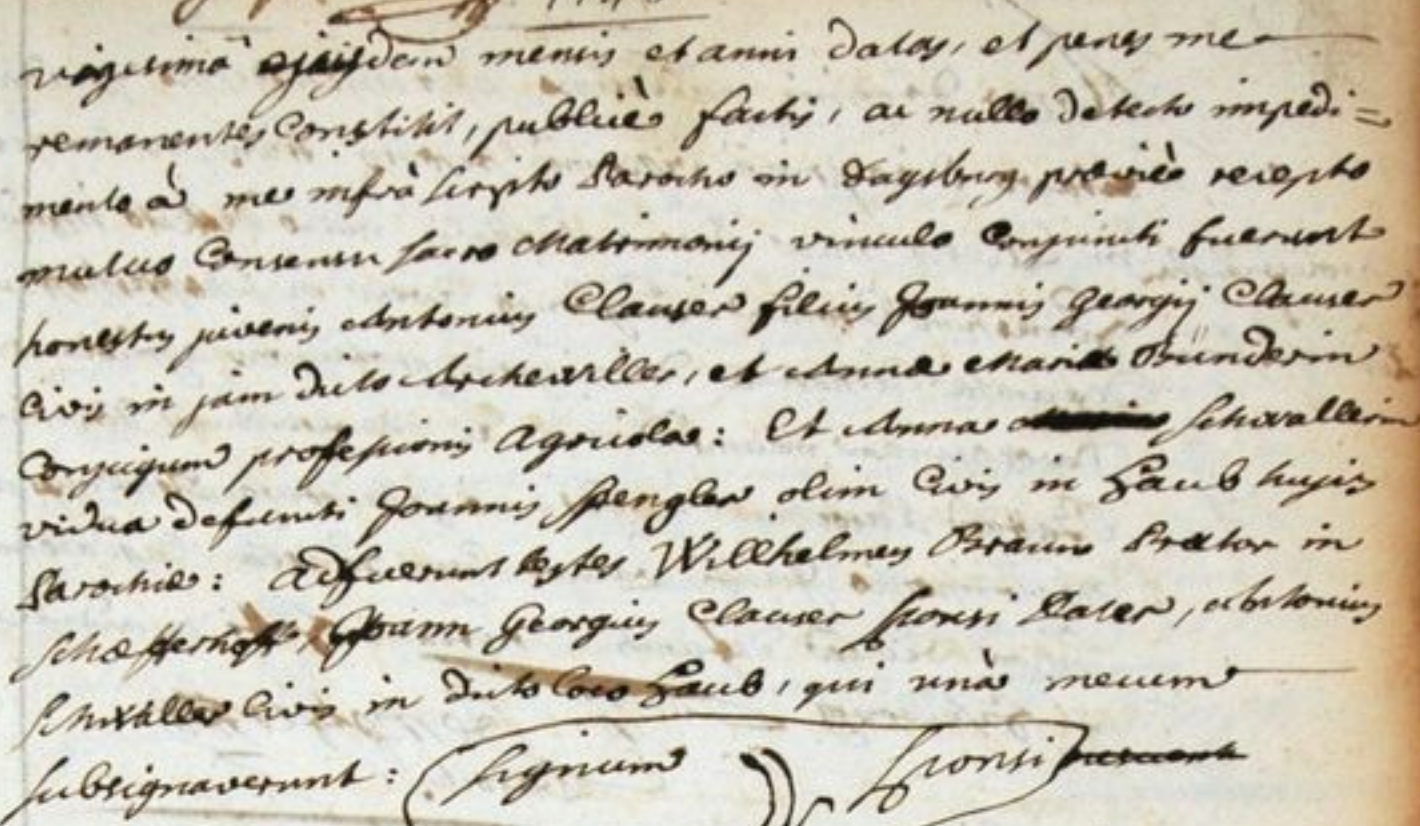 vigesimâ ejusdem mensis et anni datas, et penes me
remanentes Constitit, publicè factis, ac nullo detecto impedi=
mento à me infrà scripto Parocho in Dagsburg praeviè recepto
mutuo Consensu sacro Matrimonij vinculo Conjuncti fuerunt
honestus juvenis Antonius Clauser filius Joannis Georgij Clauser
Civis in jam dicto Archewiller, et Annae Mariae Bründerin
Conjugum professionis Agricolae: Et Anna Schwallerin
vidua defuncti Joannis Spengler olim Civis in Haub hujus
Parochiae: adfuerunt testes Willhelmus Braun Praetor in
Schaefferhoff, Joann Georgius Clauser sponsi Pater, Antonius
Schwaller Civis in dicto loco Haub, qui unà mecum
subsignaverunt: signum sponsi